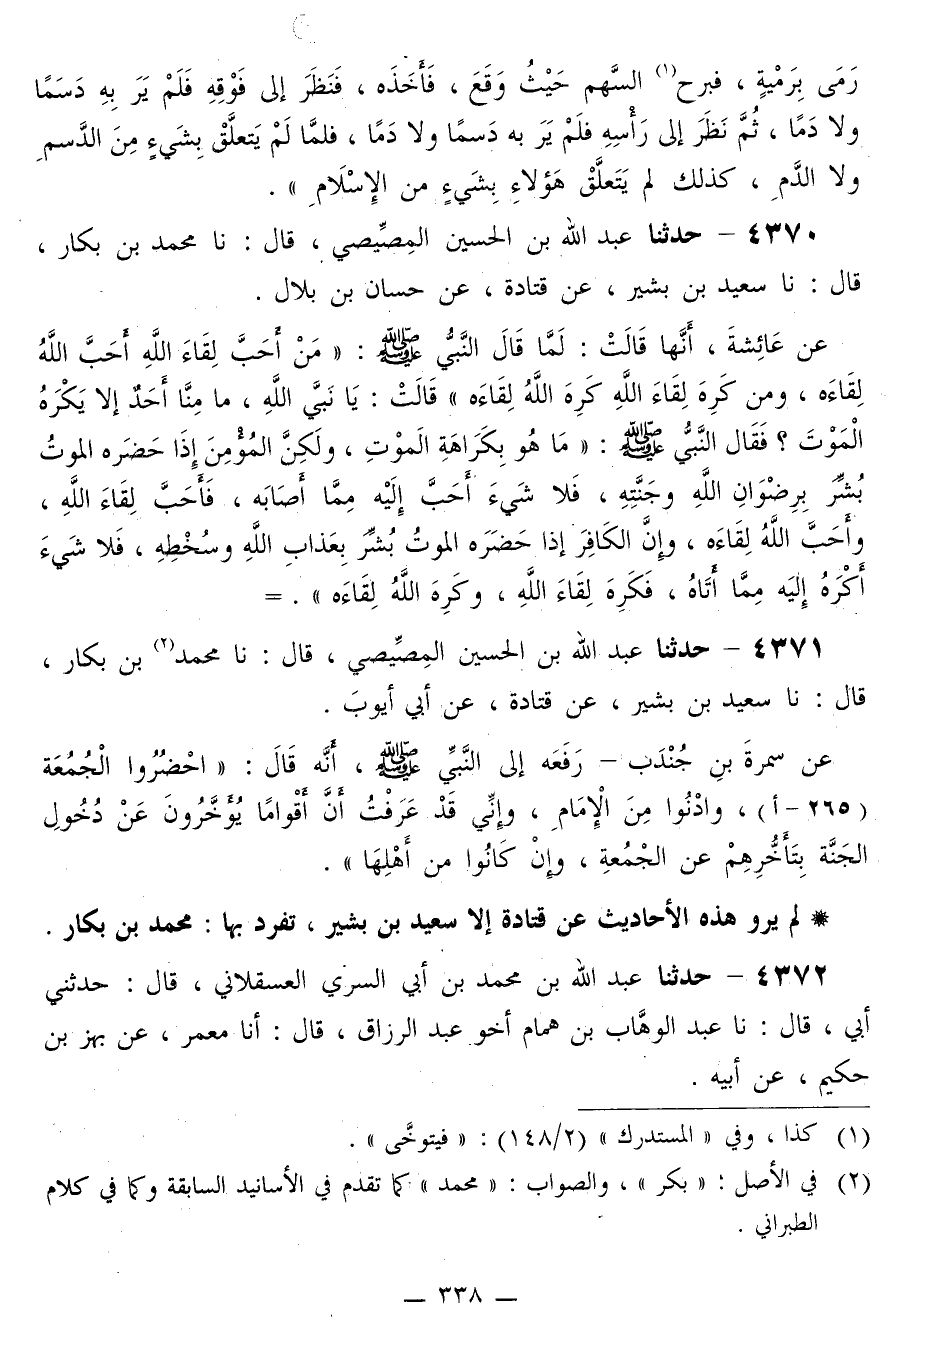 رَمَى بِرَمْيةٍ ، فبرح(١) السَّهم حَيْثُ وَقَعَ ، فَأَخَذَه ، فَنَظَرَ إلى فَوْقِهِ فَلَمْ يَرَ بِهِ دَسَمًا
ولا دَمًا ، ثُمَّ نَظَرَ إلى رَأْسِهِ فلَمْ يَرَ به دَسمًا ولا دَمًا ، فلمَّا لَمْ يَتعلَّق بِشَيءٍ مِنَ الدَّسمِ
ولا الدَّمِ ، كذلك لم يَتَعلَّق هَؤلاءِ بِشَيءٍ من الإِسْلَامِ » .
٤٣٧٠ – حدثنا عبد الله بن الحسين المِصِّيصي ، قال : نا محمد بن بكار ،
قال : نا سعيد بن بشير ، عن قتادة ، عن حسان بن بلال .
عن عَائِشةَ ، أَنَّها قَالَتْ : لَمَّا قَالَ النَّبيُّ ﷺ : « مَنْ أَحَبَّ لِقَاءَ اللَّهِ أَحَبَّ اللَّهُ
لِقَاءَه ، ومن كَرِهَ لِقَاءَ اللَّهِ كَرِهَ اللَّهُ لِقَاءَه » قَالَتْ : يَا نَبيَّ اللَّهِ ، ما مِنَّا أَحَدٌ إلا يَكْرَهُ
الْمَوْتَ ؟ فَقَال النَّبيُّ ﷺ : « مَا هُو بِكَرَاهَةِ الَموْتِ ، ولَكِنَّ المُؤْمِنَ إِذَا حَضَره الموتُ
بُشِّرَ بِرِضْوَانِ اللَّهِ وجَنَّتِهِ ، فَلا شَيءَ أَحَبَّ إِلَيْه مِمَّا أَصَابَه ، فَأَحَبَّ لِقَاءَ اللَّهِ ،
وأَحَبَّ اللَّهُ لِقَاءَه ، وإِنَّ الكَافِرَ إذا حَضَرَه الموتُ بُشِّرَ بِعَذابِ اللَّهِ وسُخْطِهِ ، فَلا شَيءَ
أَكْرَهُ إِلَيَه مِمَّا أَتَاهُ ، فَكَرِهَ لِقَاءَ اللَّهِ ، وكَرِهَ اللَّهُ لِقَاءَه » . =
٤٣٧١ – حدثنا عبد الله بن الحسين المِصِّيصي ، قال : نا محمد(٢) بن بكار ،
قال : نا سعيد بن بشير ، عن قتادة ، عن أبي أيوبَ .
عن سمرةَ بنِ جُنْدَب – رَفَعَه إلى النَّبيِّ ﷺ ، أَنَّه قَالَ : « احْضُرُوا الْجُمُعَة
(٢٦٥–أ) ، وادْنُوا مِنَ الْإِمَامِ ، وإِنِّي قَدْ عَرَفْتُ أَنَّ أَقْوامًا يُؤَخَّرُونَ عَنْ دُخُولِ
الجَنَّة بِتَأَخُّرِهِمْ عن الجْمُعةِ ، وإِنْ كَانُوا من أَهْلِهَا » .
* لم يرو هذه الأحاديث عن قتادة إلا سعيد بن بشير ، تفرد بها : محمد بن بكار .
٤٣٧٢ – حدثنا عبد الله بن محمد بن أبي السري العسقلاني ، قال : حدثني
أبي ، قال : نا عبد الوهَّاب بن همام أخو عبد الرزاق ، قال : أنا معمر ، عن بهز بن
حكيم ، عن أبيه .
(١) كذا ، وفي « المستدرك » (١٤٨/٢) : « فيتوخَّى » .
(٢) في الأصل : « بكر » ، والصواب : « محمد » كما تقدم في الأسانيد السابقة وكما في كلام
الطبراني .
— ٣٣٨ —